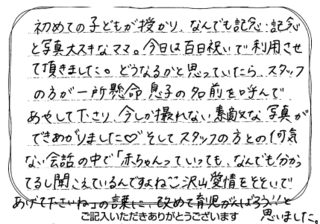 初めての子どもが授かり、なんでも記念・記念
と写真大スキなママ。今日は百日祝いで利用させ
て頂きました。どうなるかと思っていたら、スタッフ
の方が一所懸命息子の名前を呼んで
あやして下さり、今しか撮れない素敵な写真が
できあがりました♡そしてスタッフの方との何気
ない会話の中で「赤ちゃんっていっても、なんでも分かっ
てるし聞こえているんですよね〜沢山愛情をそそいで
あげて下さいね」の言葉に、改めて育児がんばろう!!と
思いました。
ご記入いただきありがとうございます